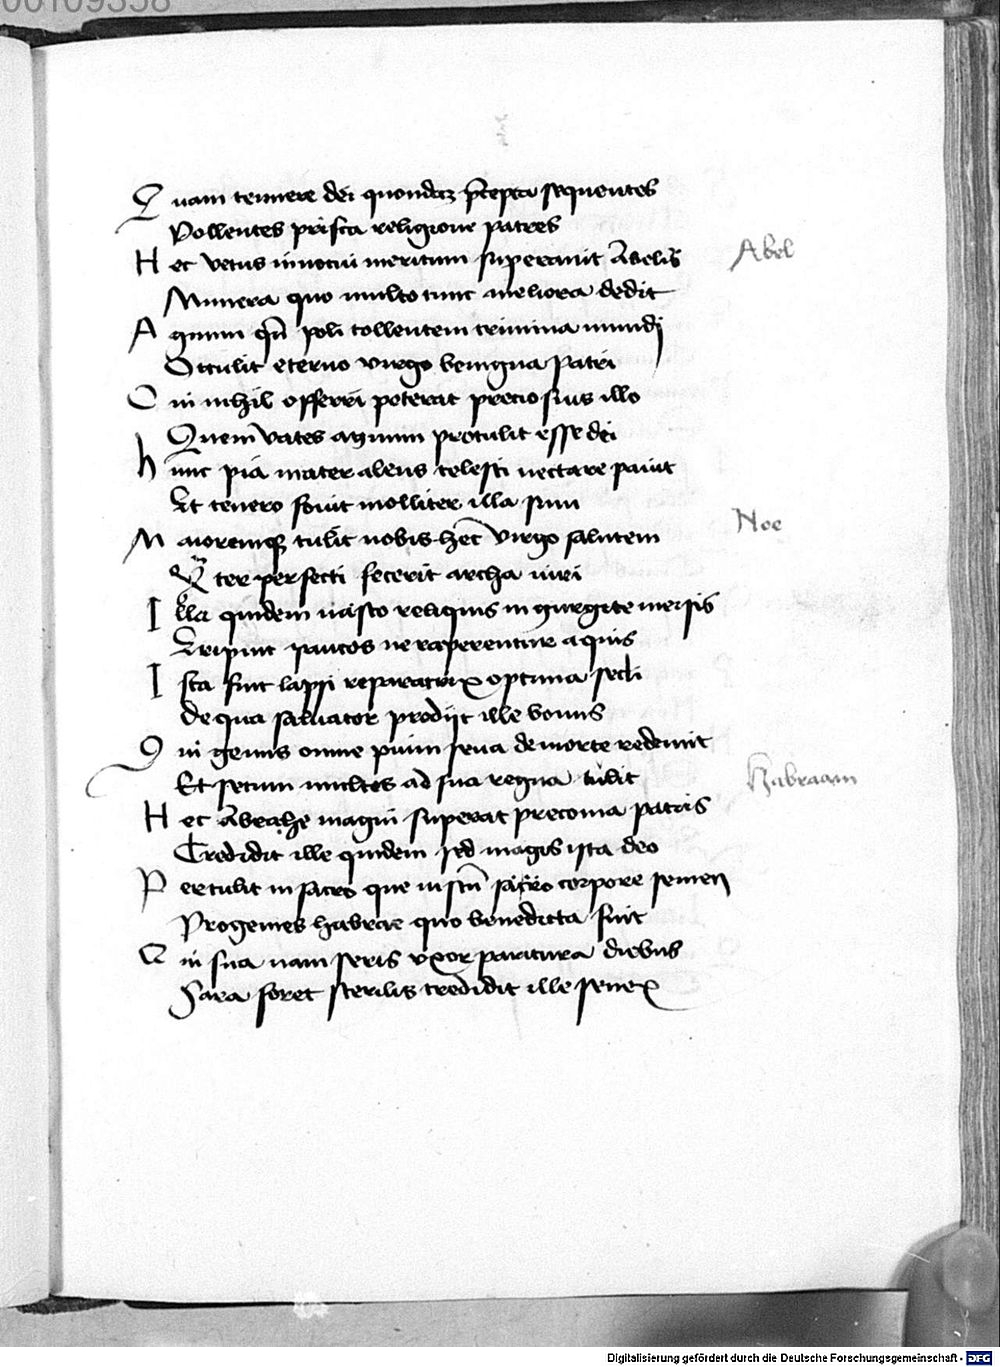 00109358
Quam tenuere dei quondam p̄cepta sequentes
Pollentes prisca religione patres
Hec vetus innocui meritum superavit Abelis
Abel
Munera quo multo tunc meliora dedit
Agnum qn̄ poli tollentem crimina mundi
Optulit eterno virgo benigna patri
Cui nihil offerri poterat preciosius illo
Quem vates agnum protulit esse dei
hunc pia mater alens celesti nectare pavit
Et tenero fovit molliter illa sinu
Maioremq; tulit nobis hec virgo salutem
Noe
ter perfecti fecerit archa viri
Illa quidem vasto reliquis in gurgite mersis
Eripuit paucos ne raperentur aquis
Ista fuit lapsi reparatrix optima secli
De qua salvator prodijt ille bonus
Qui genus omne pium seva de morte redemit
Et secum multos ad sua regna tulit
Habraam
Hec Abrahe magni superat preconia patris
Credidit ille quidem sed magis ista deo
Pertulit in sacro que corpore semen
Progenies habrae quo benedicta fuit
Cui sua nam seris uxor paritura diebus
Sara foret sterilis credidit ille senex
Digitalisierung gefördert durch die Deutsche Forschungsgemeinschaft - DFG